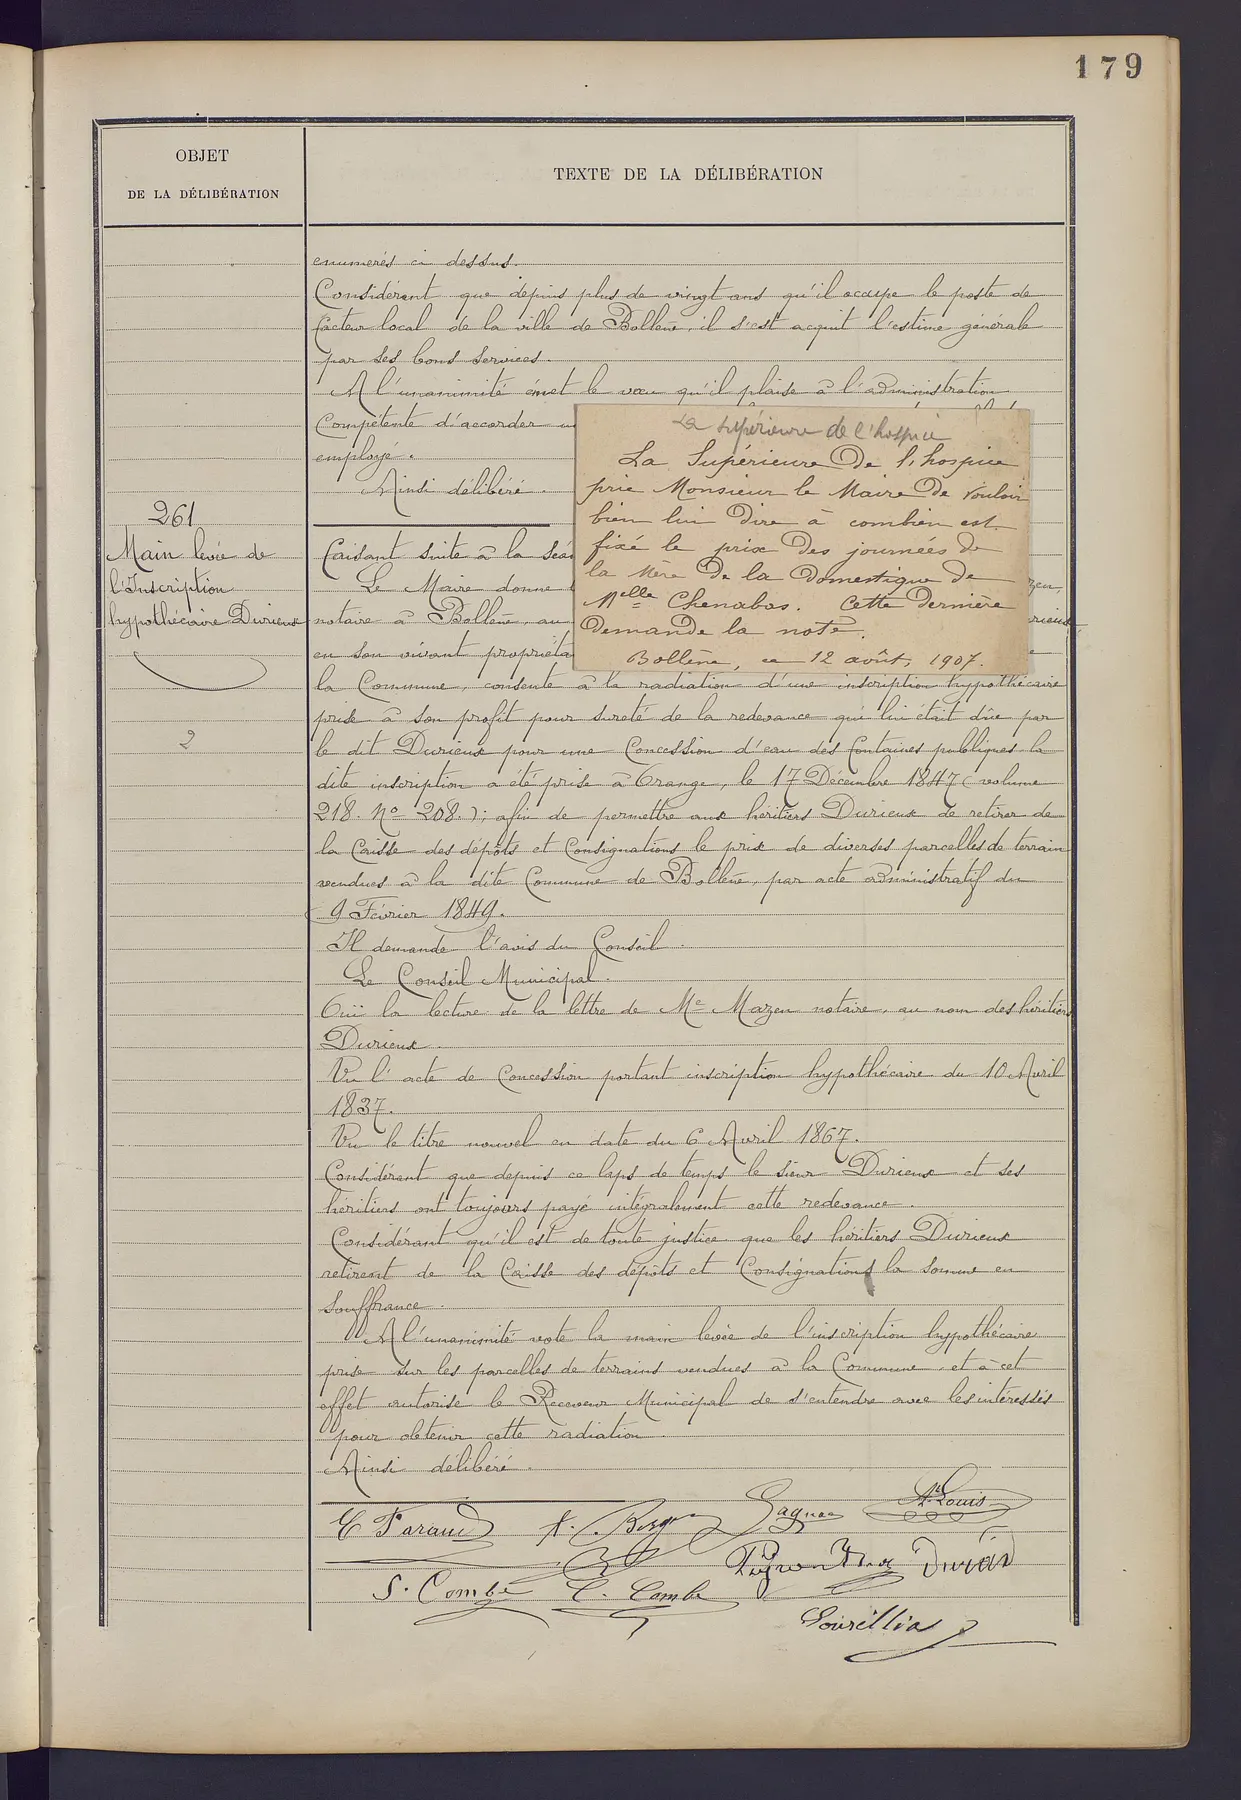 179
OBJET
DE LA DÉLIBÉRATION
TEXTE DE LA DÉLIBÉRATION
enumerés ci dessus.
Considérant que depuis plus de vingt ans qu'il occupe le poste de
facteur local de la ville de Bollène, il s'est acquit l'estime générale
par ses bons services.
A l'unanimité émet le vœu qu'il plaise à l'administration
Compétente d'accorder
employé.
Ainsi délibéré.
La Supérieure de l'hospice
La Supérieure De l'hospice
prie Monsieur le Maire De vouloir
bien lui Dire à combien est
fixé le prix Des journées de
la Mère De la Domestique de
Melle Chenabas. Cette Dernière
Demande la note.
Bollène, ce 12 août, 1907.
261
Main levée de
l'Inscription
hypothécaire Durieux
2
Faisant suite à la
Le Maire donne
notaire à Bollène, au
en son vivant
la Commune, consente à la radiation d'une inscription hypothécaire
prise à son profit pour sureté de la redevance qui lui était dûe par
le dit Durieux pour une Concession d'eau des fontaines publiques la
dite inscription a été prise à Orange, le 17 Décembre 1847 (volume
218. No 208.); afin de permettre aux héritiers Durieux de retirer de
la Caisse des dépôts et Consignations le prix de diverses parcelles de terrain
vendues à la dite Commune de Bollène, par acte administratif du
9 Février 1849.
Il demande l'avis du Conseil.
Le Conseil Municipal.
Ouï la lecture de la lettre de Me Mazen notaire, au nom des héritiers
Durieux.
Vu l'acte de Concession portant inscription hypothécaire du 10 Avril
1837.
Vu le titre nouvel en date du 6 Avril 1867.
Considérant que depuis ce laps de temps le sieur Durieux et ses
héritiers ont toujours payé intégralement cette redevance.
Considérant qu'il est de toute justice que les héritiers Durieux
retirent de la Caisse des dépôts et Consignations la somme en
souffrance.
A l'unanimité vote la main levée de l'inscription hypothécaire
prise sur les parcelles de terrains vendues à la Commune, et à cet
effet autorise le Receveur Municipal de s'entendre avec les intéressés
pour obtenir cette radiation.
Ainsi délibéré.
St Louis
S. Combe
C. Combe